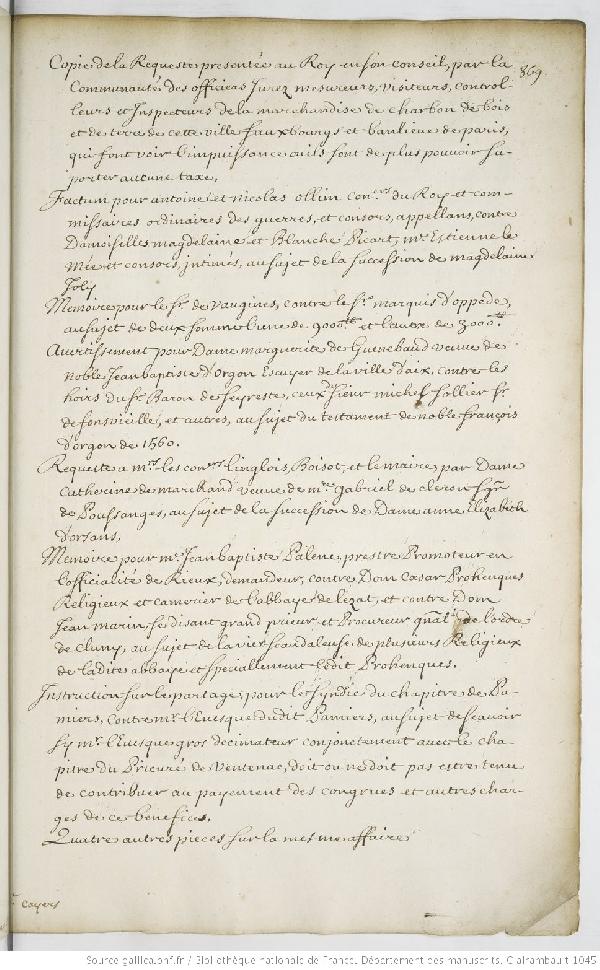 869
Copie de la Requeste presentée au Roy en son conseil, par la
Communauté des officiers Jurez mesureurs, visiteurs, control-
leurs et Inspecteurs de la marchandise de charbon de bois
et de terre de cette ville fauxbourgs et banlieue de paris,
qui font voir l'impuissance ou ils sont de plus pouvoir su-
porter aucune taxe,
Factum pour antoine et nicolas ollim con.ers du Roy et com-
missaires ordinaires des guerres, et consors, appellans, contre
Damoiselles magdelaine et Blanche Picart, mre Estienne le
Mée et consors, intimés, au sujet de la succession de magdelaine
Joly
Memoire pour le sr. de vaugines, contre le sr. marquis d'oppede,
au sujet de deux somme l'une de 9000.lt et l'autre de 3000.lt
Avertissement pour Dame marguerite de Guinebaud veuve de
noble Jean baptiste d'orgon Escuyer de la ville d'aix, contre les
hoirs du sr. Baron de ceux sieur michel sr.
de fonsvieille, et autres, au sujet du testament de noble françois
d'orgon de 1560.
Requeste a mrs. les con.ers Linglois, Boisot, et le maire, par Dame
Catherine de marchand veuve de mre. gabriel de cleron sgr.
de Poussanges, au sujet de la succession de Dame anne Elizabeth
d'orsans,
Memoire pour mr. Jean baptiste Palene, prestre Promoteur en
l'officialité de Rieux, demandeur, contre Dom Cæsar Prohenques
Religieux et camerier de l'abbaye de lezat, et contre Dom
Jean marin, se disant grand prieur et Procureur gnal. de l'ordre
de cluny, au sujet de la vie scandaleuse de plusieurs Religieux
de ladite abbaye et specialement ledit Prohenques.
Instruction sur le partage, pour le syndic du chapitre de Pa-
miers, contre mr. l'Evesque dudit Pamiers, au sujet de scavoir
sy mr. l'Evesque gros decimateur conjointement avec le cha-
pitre du Prieuré de Ventenac, doit ou ne doit pas estre tenu
de contribuer au payement des congrues et autres char-
ges de ces benefices.
Quatre autres pieces sur la mesme affaire
cayers
Source gallica.bnf.fr / Bibliothèque nationale de France. Département des manuscrits. Clairambault 1045